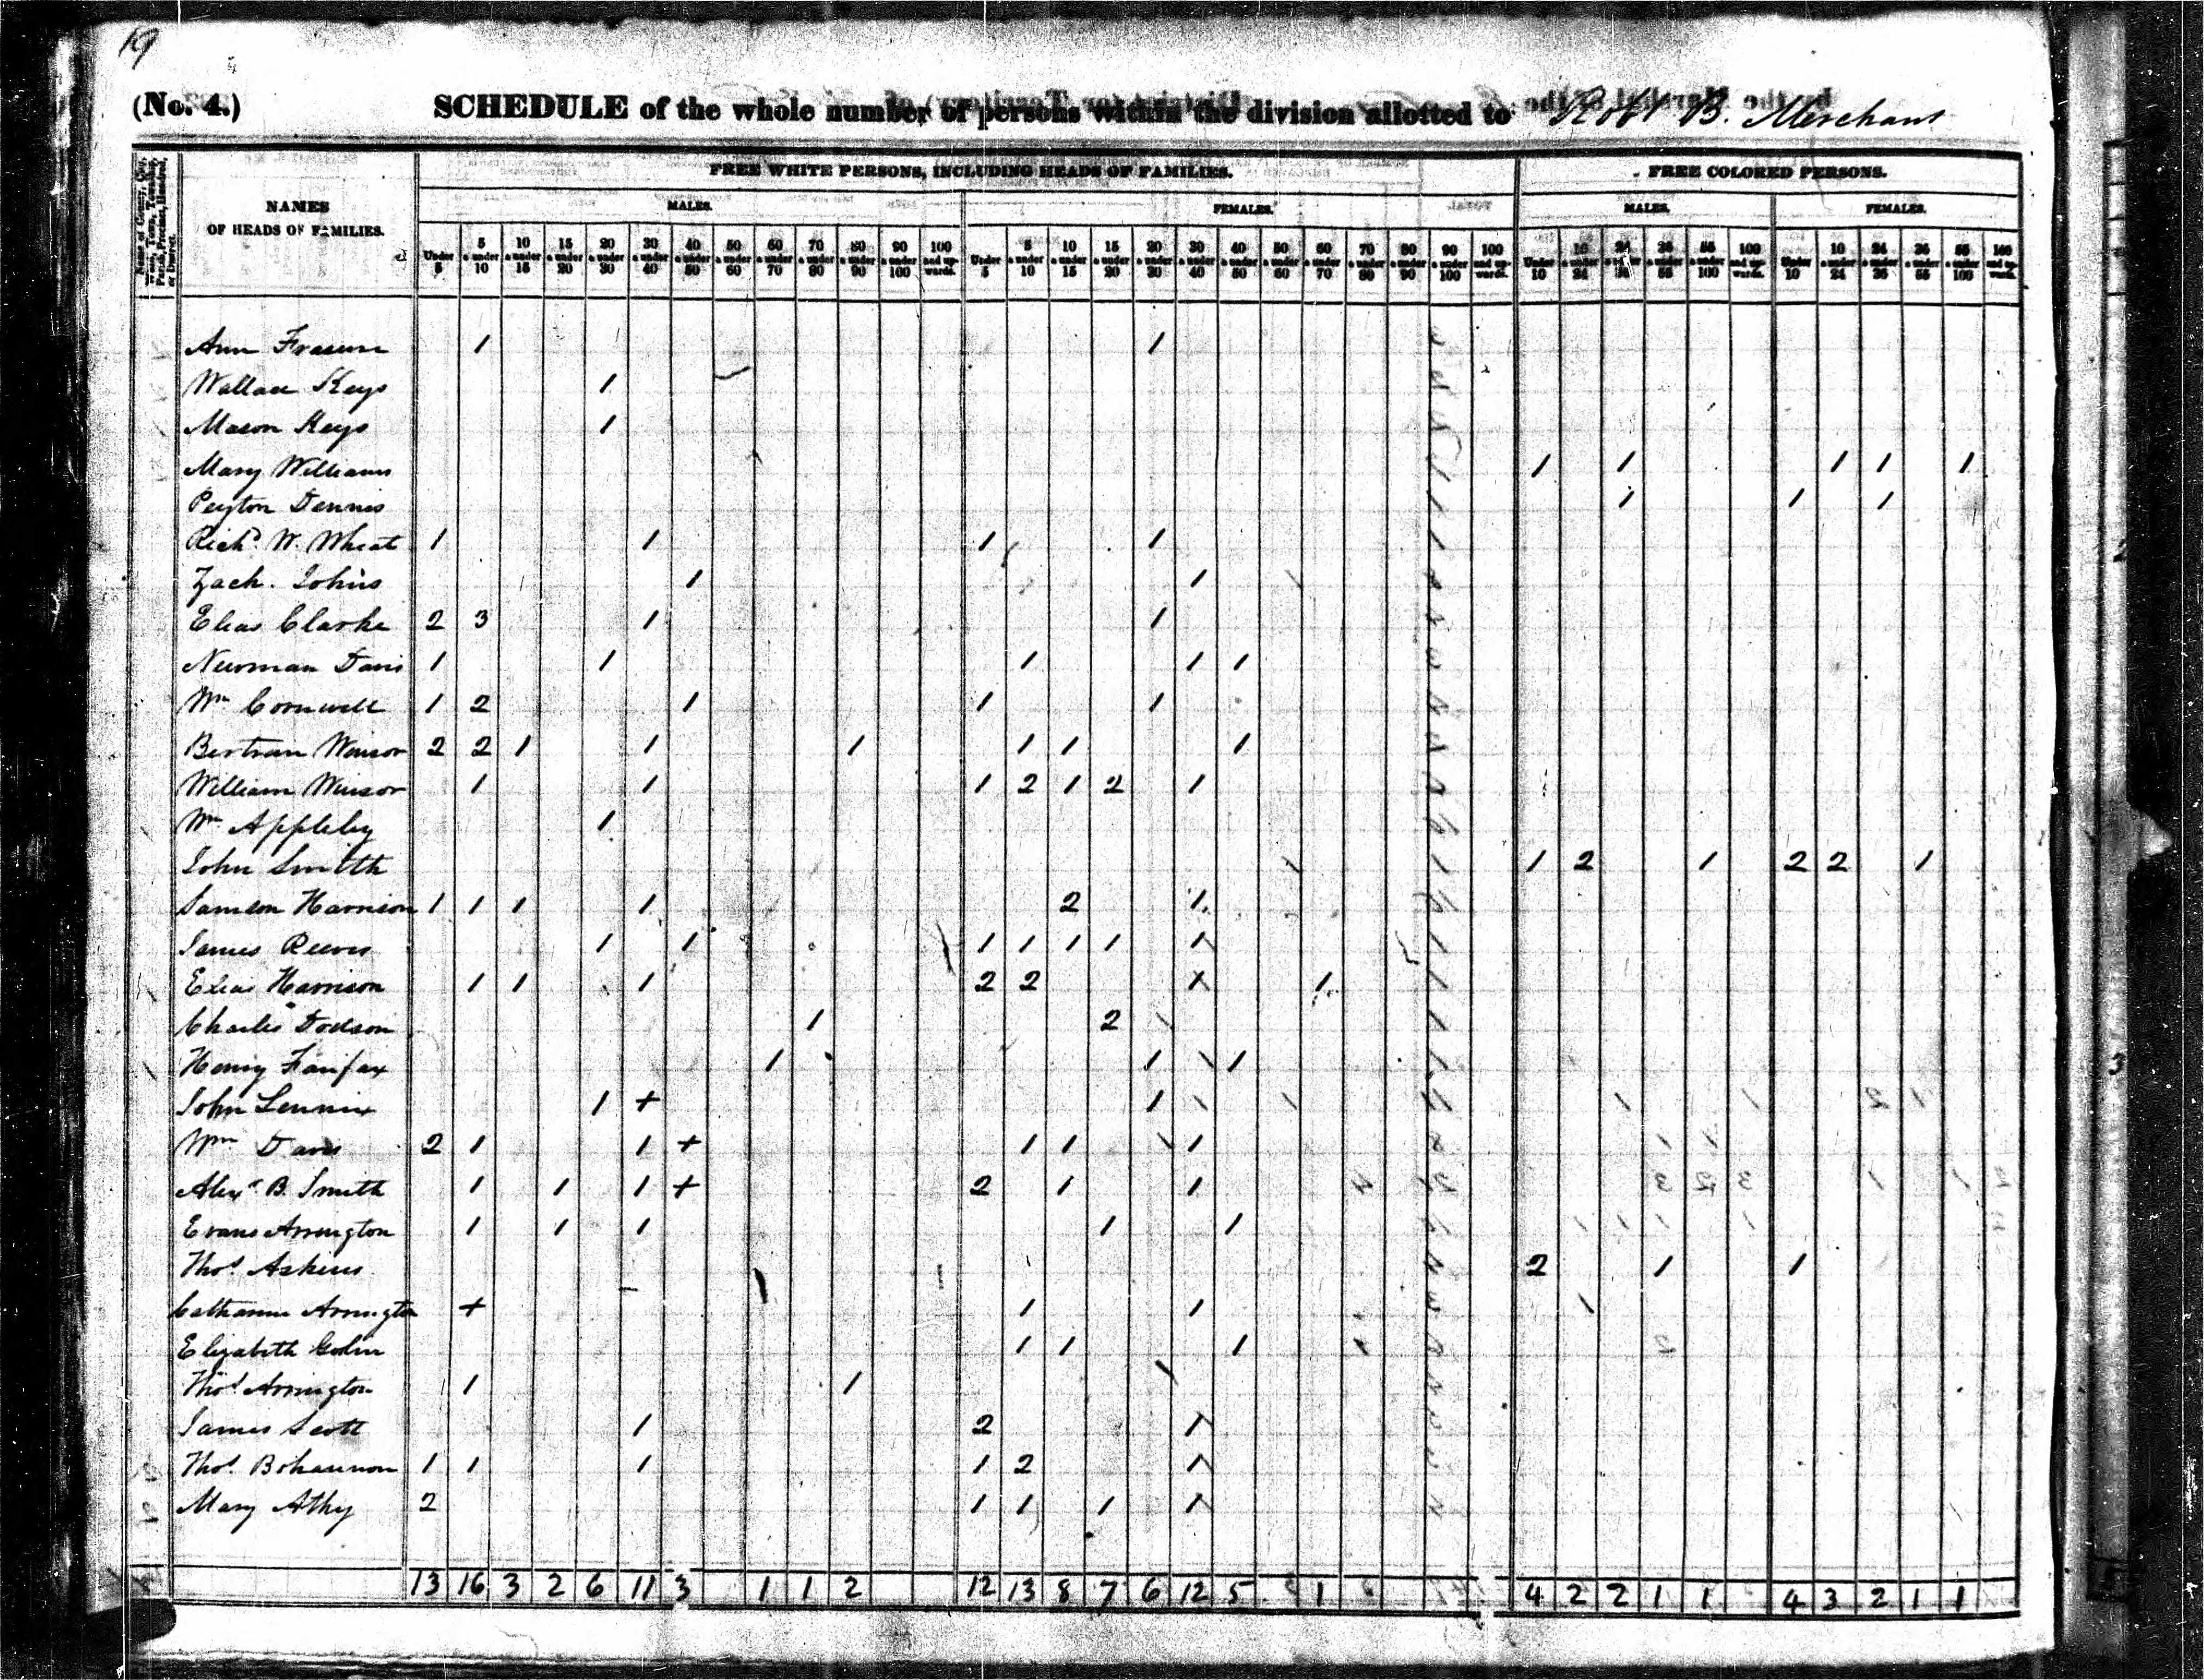 19
(No. 4.) SCHEDULE of the whole number of persons within the division allotted to Robt B. Merchant
FREE WHITE PERSONS, INCLUDING HEADS OF FAMILIES. FREE COLORED PERSONS.
NAMES OF HEADS OF FAMILIES. MALES. FEMALES. MALES. FEMALES.
Under 5 5 & under 10 10 & under 15 15 & under 20 20 & under 30 30 & under 40 40 & under 50 50 & under 60 60 & under 70 70 & under 80 80 & under 90 90 & under 100 100 and upwards. Under 5 5 & under 10 10 & under 15 15 & under 20 20 & under 30 30 & under 40 40 & under 50 50 & under 60 60 & under 70 70 & under 80 80 & under 90 90 & under 100 100 and upwards. Under 10 10 & under 24 24 & under 36 36 & under 55 55 & under 100 100 and upwards. Under 10 10 & under 24 24 & under 36 36 & under 55 55 & under 100 100 and upwards.
Ann 1 1
Wallace Keys 1
Mason Keys 1
Mary Williams 1 1 1 1 1
Peyton Dennis 1 1 1
Richd. W. Wheat 1 1 1 1
Zach. Johns 1 1
Elias Clarke 2 3 1 1
Newman Davis 1 1 1 1 1
Wm Cornwell 1 2 1 1 1
Bertram Winsor 2 2 1 1 1 1 1 1
William Winsor 1 1 1 2 1 2 1
Wm Appleby 1
John Smith 1 2 1 2 2 1
Samson Harrison 1 1 1 1 2 1
James Reeves 1 1 1 1 1 1 1
Elias Harrison 1 1 1 2 2 1 1
Charles Dodson 1 2
Henry Fairfax 1 1 1
John Lennix 1 + 1
Wm Davis 2 1 1 + 1 1 1
Alexr B. Smith 1 1 1 + 2 1 1
Evans Arrington 1 1 1 1 1
Thos Askins 2 1 1
Catharine Arrington + 1 1
Elizabeth 1 1 1
Thos Arrington 1 1
James Scott 1 2 1
Thos Bohannon 1 1 1 1 2 1
Mary Athy 2 1 1 1 1
13 16 3 2 6 11 3 1 1 2 12 13 8 7 6 12 5 1 4 2 2 1 1 4 3 2 1 1